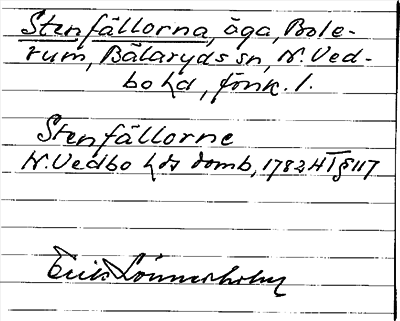 Stenfällorna, äga, Bole-
rum, Bälaryds sn, N. Ved-
bo hd, Jönk. l.
Stenfällorne
N. Vedbo hds domb, 1782 HT § 117
Erik Lönnerholm